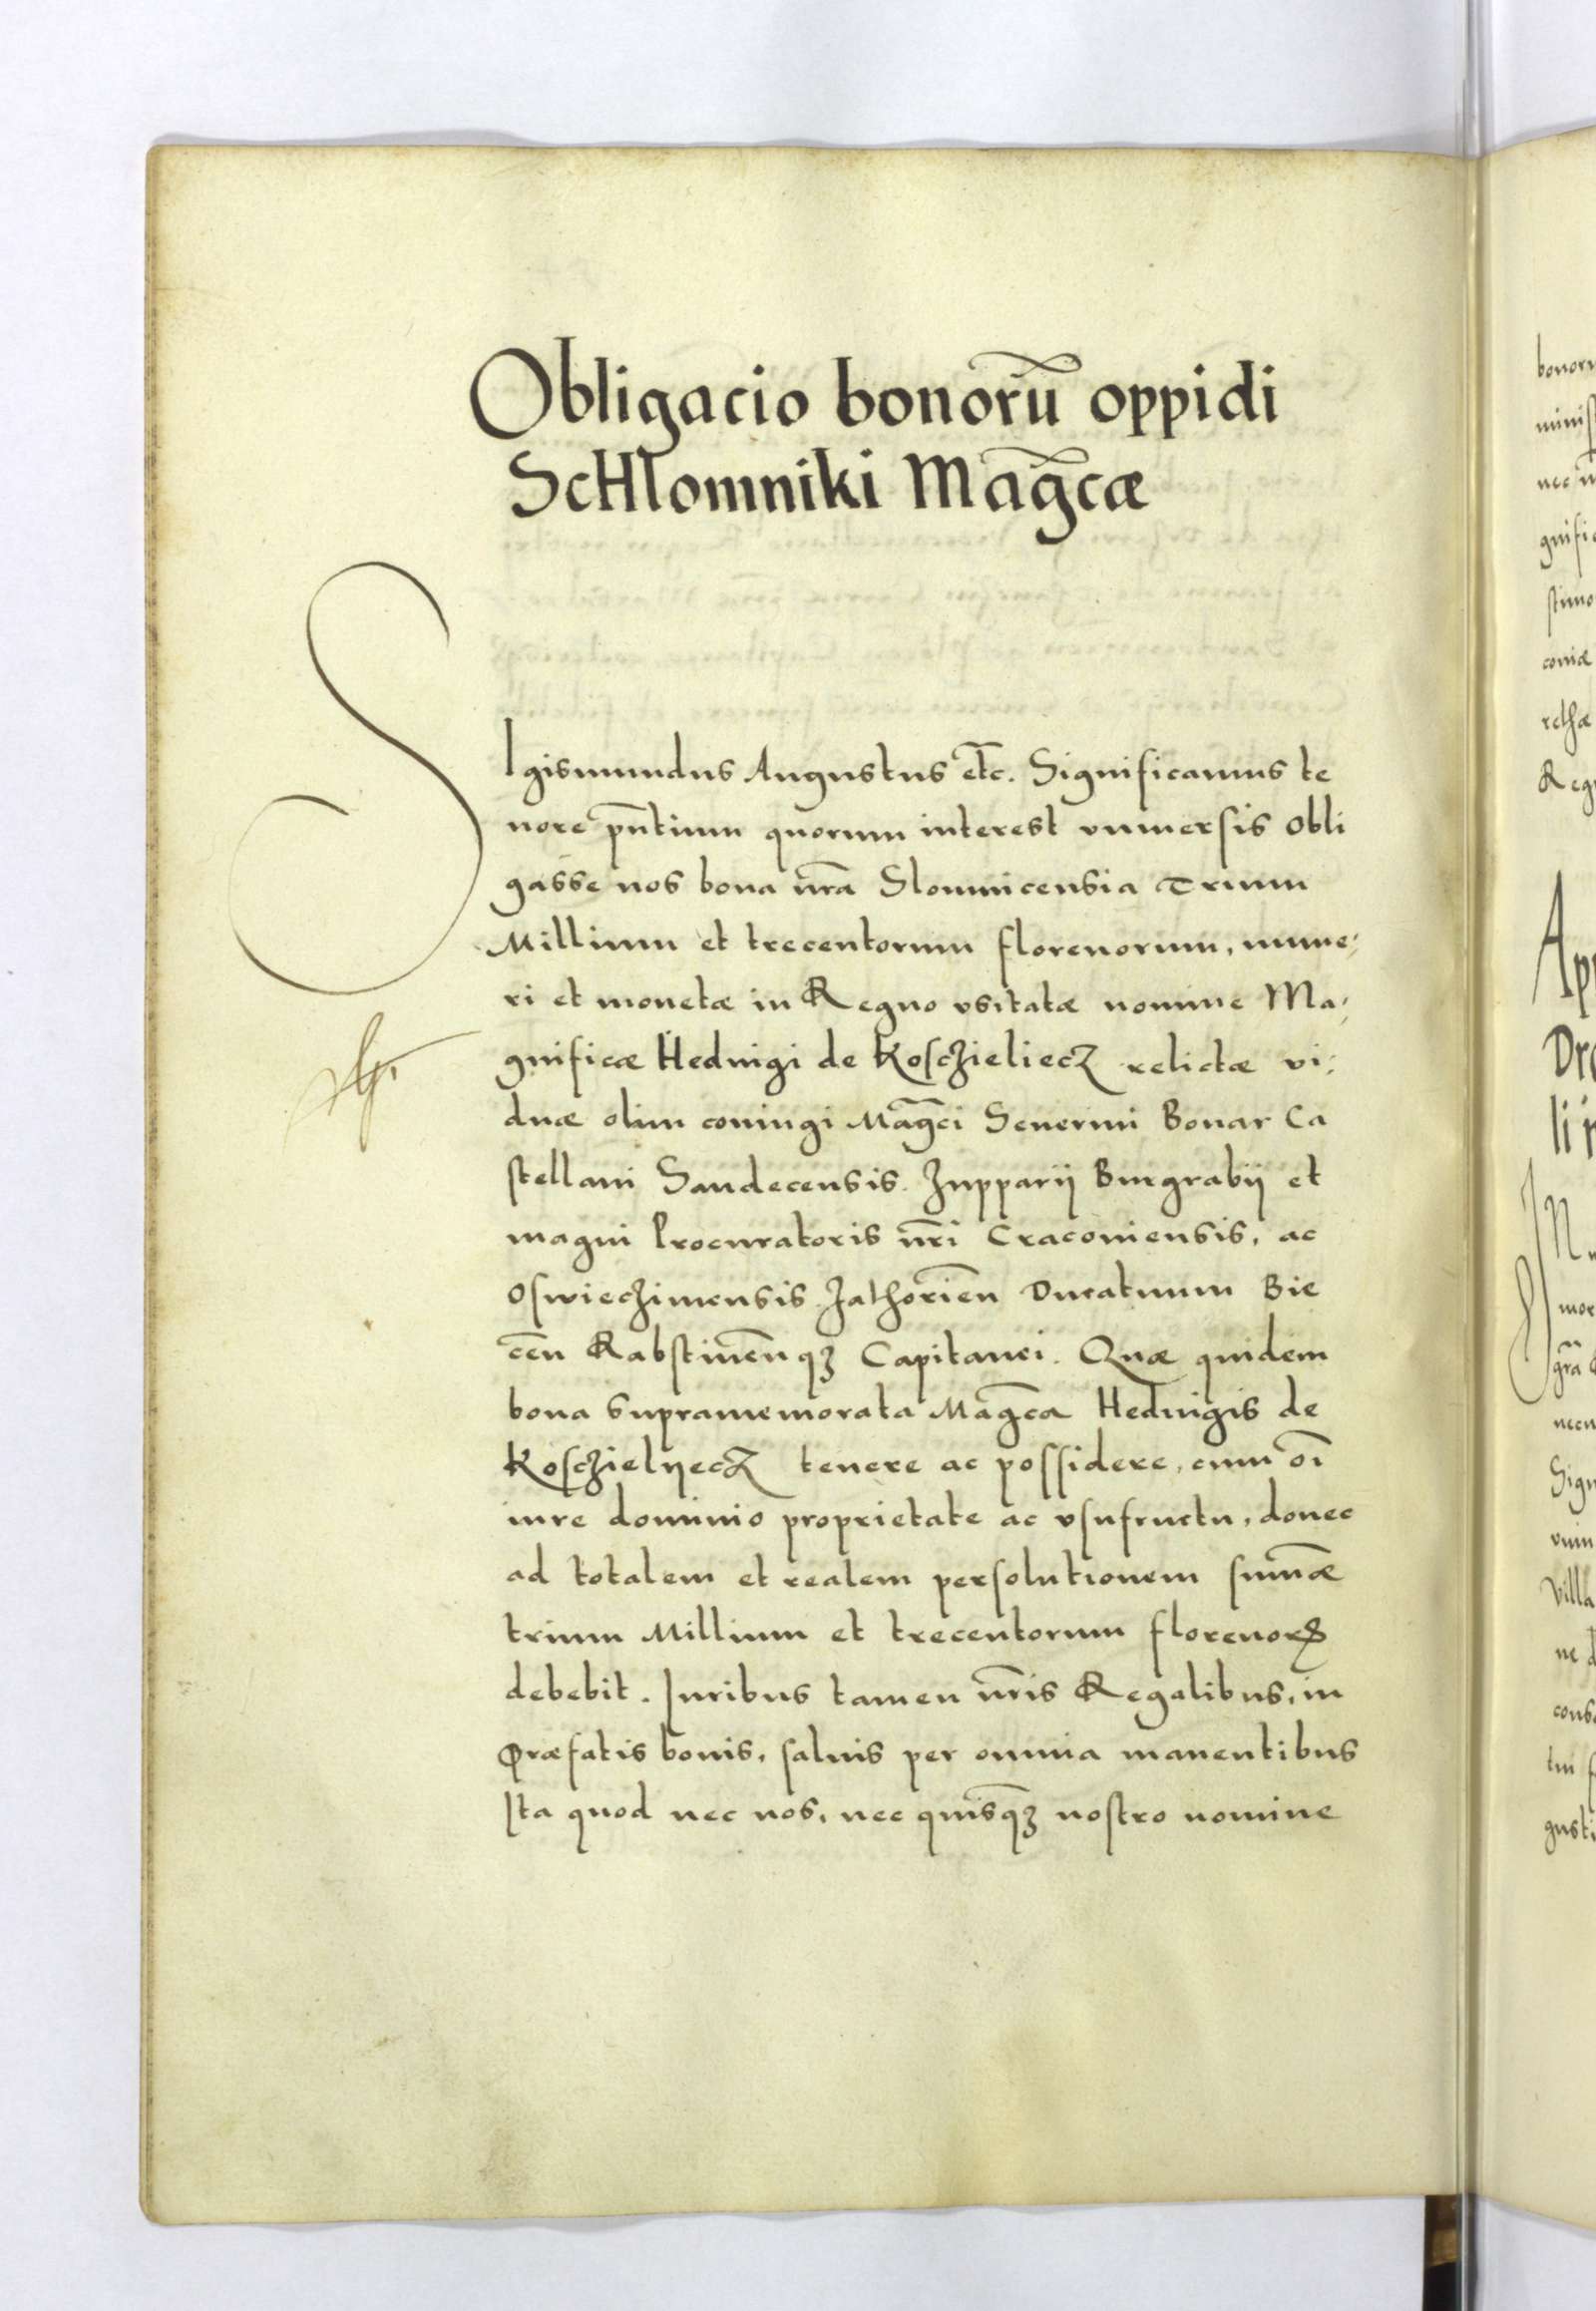 Obligacio bonorū oppidi
ScHlomniki Mag̃cæ
SIgismundus Augustus etc̃. Significamus te
nore pñtium quorum interest vniuersis obli
gasse nos bona nr̃a Slomnicensia Trium
Millium et trecentorum florenorum, nume-
ri et monetæ in Regno vsitatæ nomine Ma-
gnificæ Heduigi de Kosczieliecz relictæ vi-
duæ olim coniugi Mag̃ci Seuerini Bonar Ca
stellani Sandecensis. Zupparij Burgrabij et
magni Procuratoris nr̃i Cracouiensis, ac
Oswieczimensis Zathorien̄ Ducatuum Bie
cen̄ Rabstinen̄ qꝫ Capitanei. Quæ quidem
bona supramemorata Mag̃ca Heduigis de
Kosczielyecz tenere ac possidere, cum oı̃
iure dominio proprietate ac vsufructu, donec
ad totalem et realem persolutionem sum̄æ
trium Millium et trecentorum florenorꝝ
debebit. Iuribus tamen nr̃is Regalibus, in
præfatis bonis, saluis per omnia manentibus
Ita quod nec nos, nec quisqꝫ nostro nomine